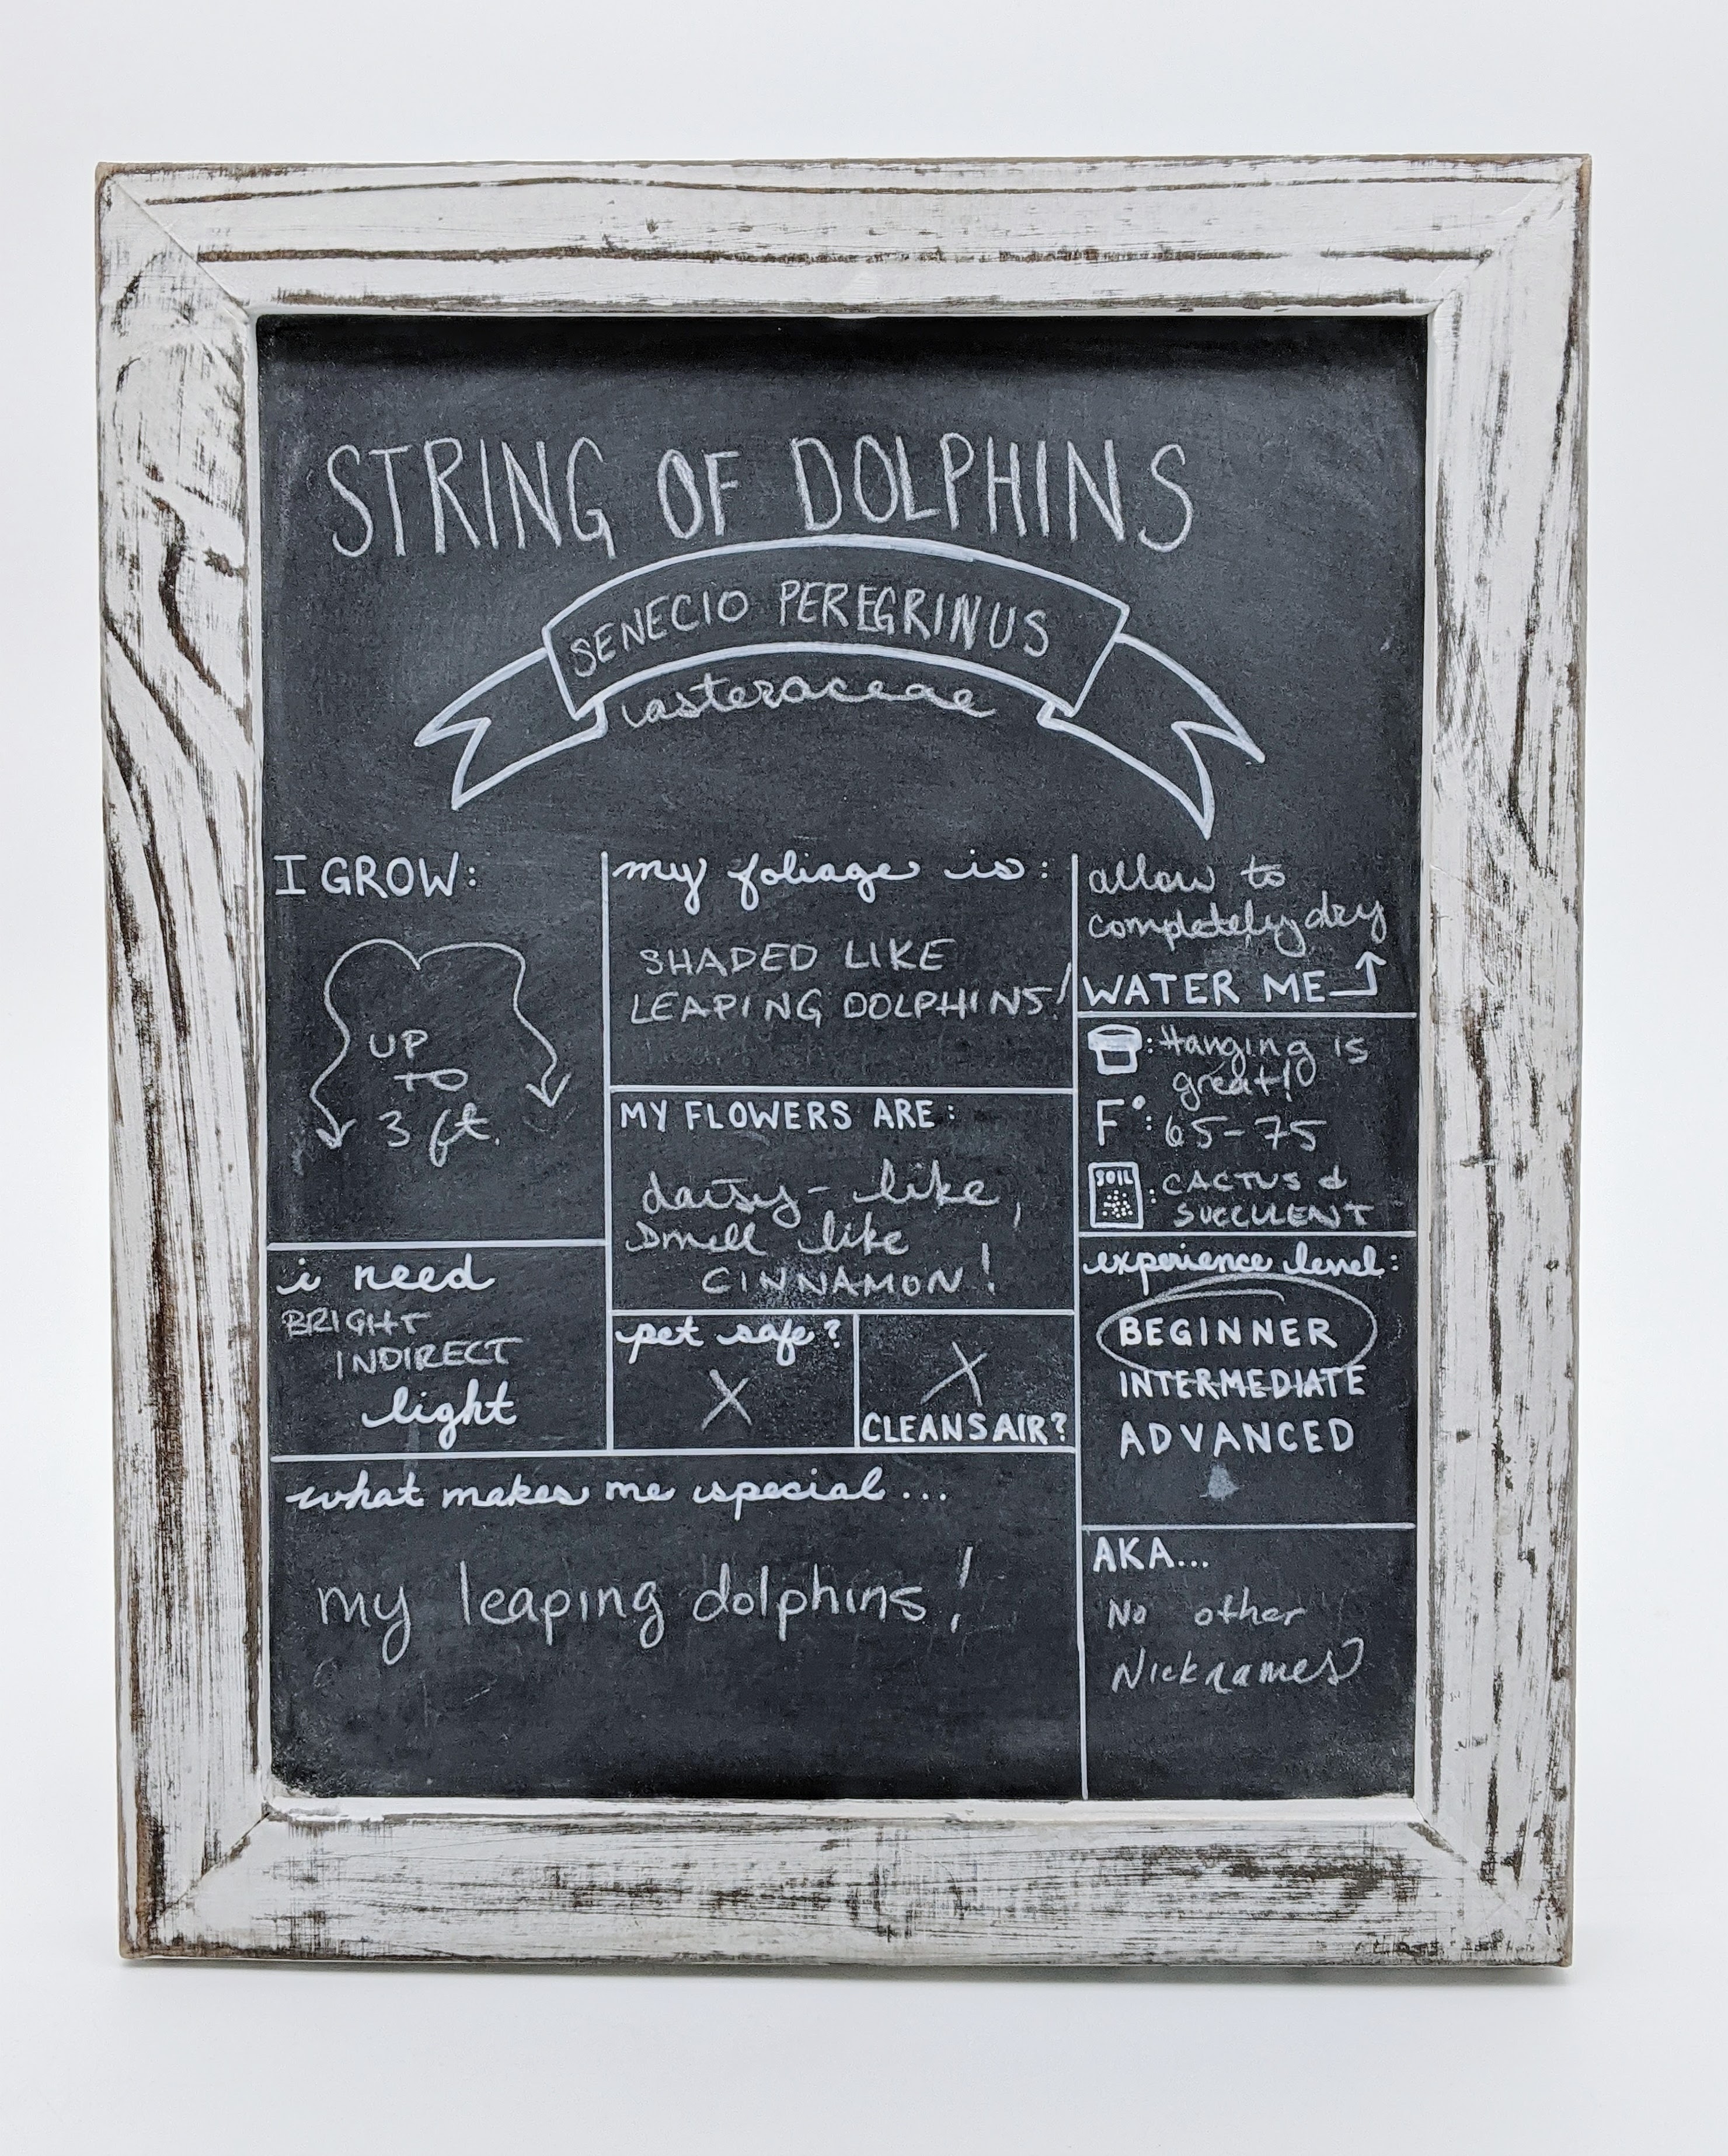 STRING OF DOLPHINS
SENECIO PEREGRINUS
asteraceae
I GROW:
UP
TO
3 ft.
my foliage is:
SHADED LIKE
LEAPING DOLPHINS!
allow to
completely dry
WATER ME
Hanging is
great!
F°: 65-75
SOIL
: CACTUS &
SUCCULENT
MY FLOWERS ARE:
daisy-like,
Smell like
CINNAMON!
i need
BRIGHT
INDIRECT
light
pet safe?
X
X
CLEANS AIR?
experience level:
BEGINNER
INTERMEDIATE
ADVANCED
what makes me special...
my leaping dolphins!
AKA...
No other
Nicknames